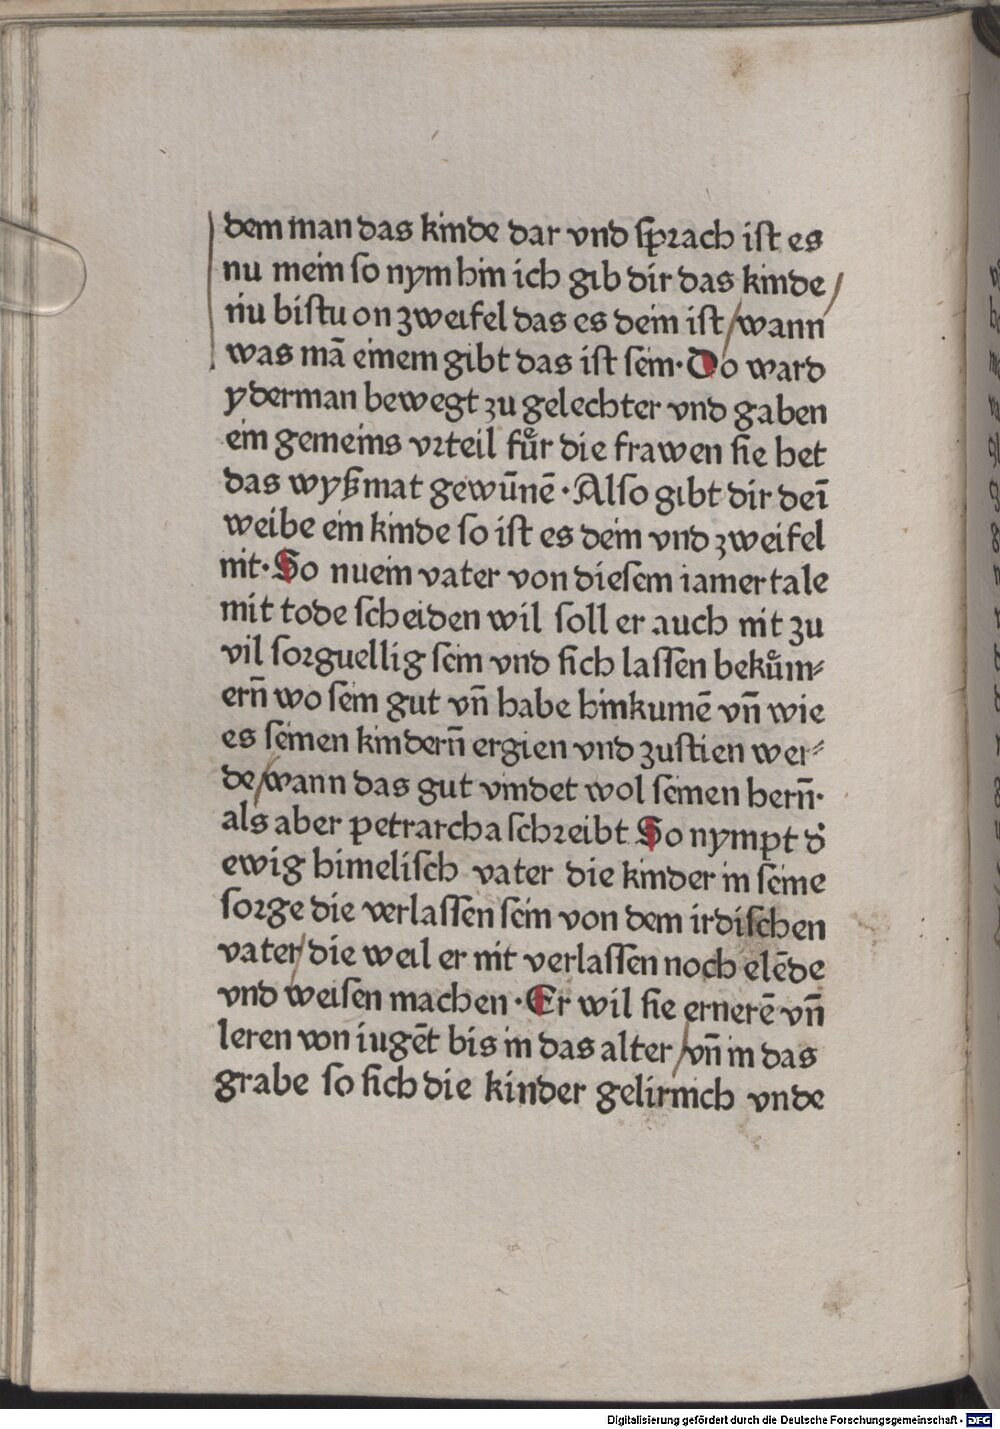 dem man das kinde dar vnd sprach ist es
nu mein so nym hin ich gib dir das kinde /
nu bistu on zweifel das es dein ist / wann
was mā einem gibt das ist sein · Do ward
yderman bewegt zu gelechter vnd gaben
ein gemeins vrteil fuͤr die frawen sie het
das wyßmat gewūnē · Also gibt dir dei̅
weibe ein kinde so ist es dein vnd zweifel
nit · So nu ein vater von diesem iamertale
mit tode scheiden wil soll er auch nit zu
vil sorguellig sein vnd sich lassen bekuͤm⸗
ern̄ wo sein gut vn̄ habe hinkumē vn̄ wie
es seinen kindern̄ ergien vnd zustien wer⸗
de / wann das gut vindet wol seinen hern̄ ·
als aber petrarcha schreibt So nympt d̓
ewig himelisch vater die kinder in seine
sorge die verlassen sein von dem irdischen
vater / die weil er nit verlassen noch elēde
vnd weisen machen · Er wil sie ernerē vn̄
leren von iugēt bis in das alter / vn̄ in das
grabe so sich die kinder gelirnich vnde
Digitalisierung gefördert durch die Deutsche Forschungsgemeinschaft - DFG